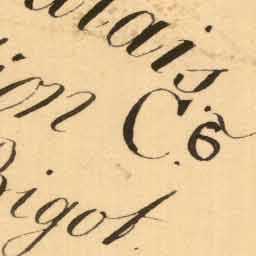 alais.
ion C.6
Bigot.